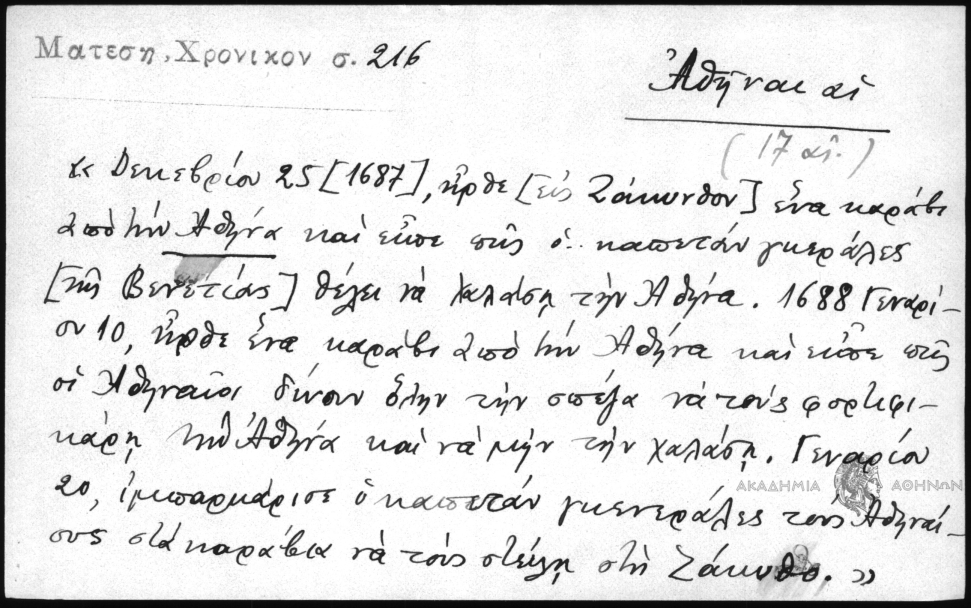 Ματεση, Χρονικον σ. 216
Ἀθῆναι αἱ
(17 αἰ.)
« Δεκεβρίου 25 [1687], ἦρθε [εἰς Ζάκυνθον] ἕνα καράβι
ἀπὸ τὴν Ἀθήνα καὶ εἶπε πῶς ὁ.. καπετάν γκεράλες
[τῆς Βενετίας] θέλει νὰ χαλάσῃ τὴν Ἀθήνα. 1688 Γεναρί-
ου 10, ἦρθε ἕνα καράβι ἀπὸ τὴν Ἀθήνα καὶ εἶπε πῶς
οἱ Ἀθηναῖοι δίνουν ὅλην τὴν σπέζα νὰ τοὺς φορτιφι-
κάρῃ τὴν Ἀθήνα καὶ νὰ μὴν τὴν χαλάσῃ. Γεναρίου
20, ἰμπαρκάρισε ὁ καπετάν γκενεράλες τοὺς Ἀθηναί-
ους στὰ καράβια νὰ τοὺς στείλῃ στὴ Ζάκυνθο. »
ΑΚΑΔΗΜΙΑ ΑΘΗΝΩΝ